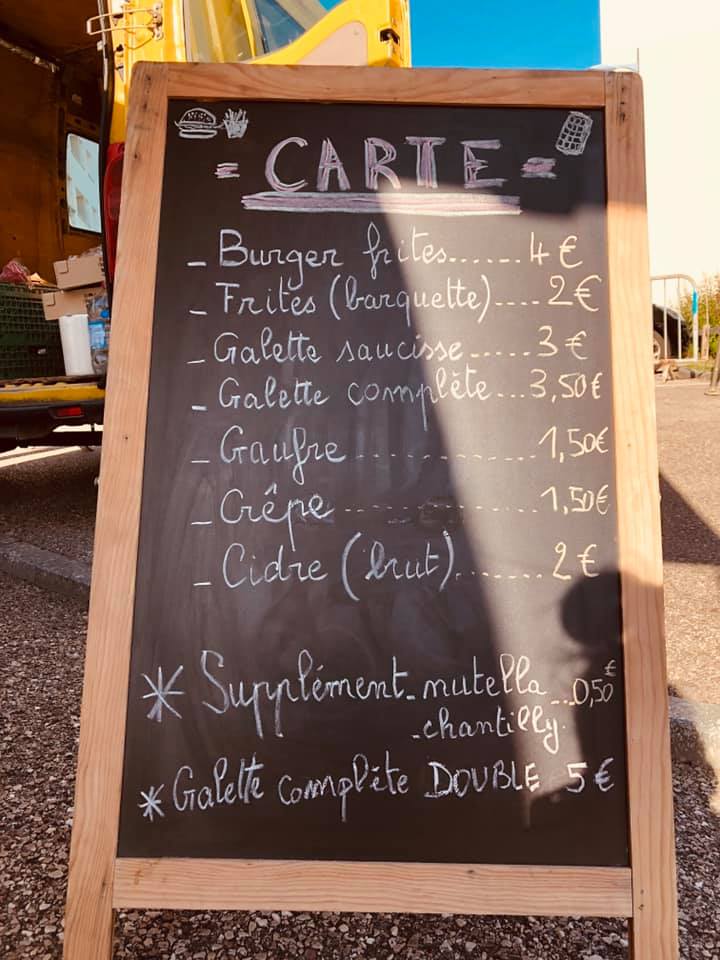 = CARTE =
- Burger frites......4€
- Frites (barquette)....2€
- Galette saucisse......3€
- Galette complète...3,50€
- Gaufre ..............1,50€
- Crêpe ..............1,50€
- Cidre (brut).......2€
* Supplément - nutella ...0,50€
- chantilly.
* Galette complète DOUBLE 5€